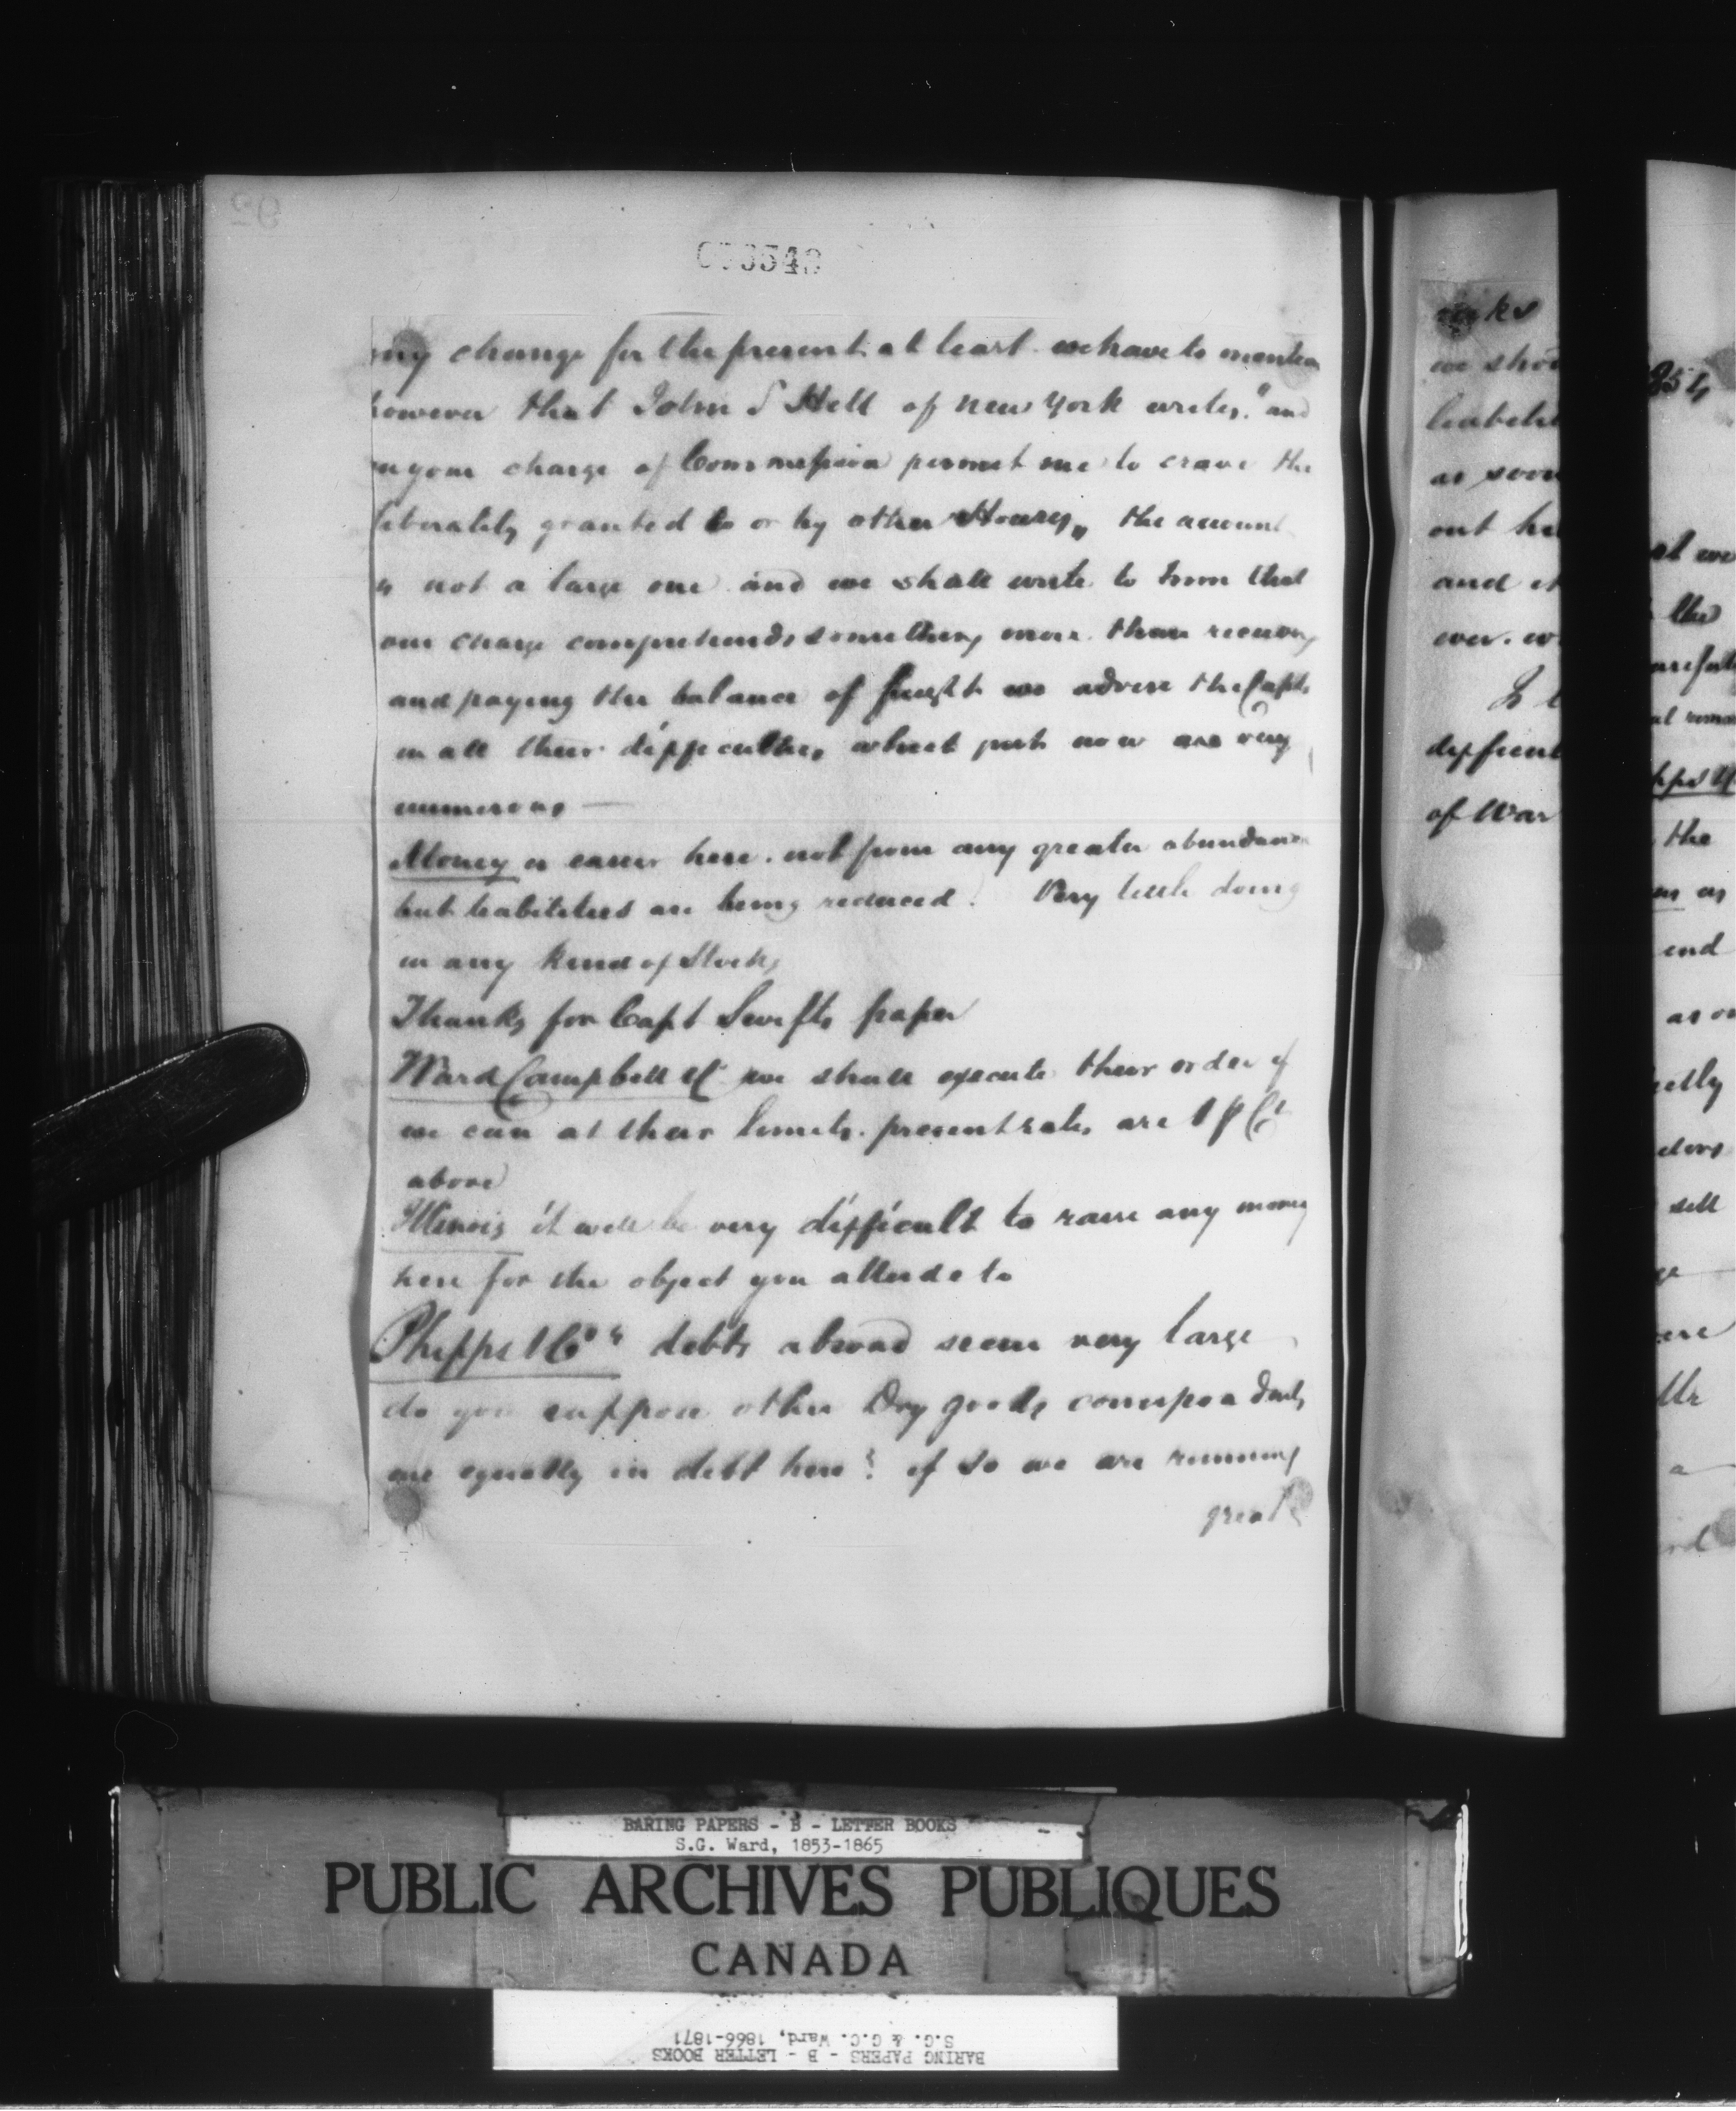 92
any change for the present at least. we have to mention
however that John S Hell of New York writes, "and
in your charge of Commission permit me to crave the
liberality granted to or by other Houses,, the account
is not a large one and we shall write to him that
our charge comprehends something more than receiving
and paying the balance of freight we advise the Capts
in all their difficulties which just now are very
numerous —
Money is easier here. not from any greater abundance
but liabilities are being reduced. Very little doing
in any kind of Stocks
Thanks for Capt Swifts paper
Ward Campbell & C we shall execute their order if
we can at their limits. present rates are 1 p Ct
above
Illinois it will be very difficult to raise any money
here for the object you allude to
Phipps & Co's debts abroad seem very large
do you suppose other Dry goods correspondents
are equally in debt here? if so we are running
great
risks
we shou
liabiliti
as soon
out he
and it
ever. w
difficult
of War
854
the
the
as
end
as
sell
Mr
a
BARING PAPERS - B - LETTER BOOKS
S.G. Ward, 1853-1865
PUBLIC ARCHIVES PUBLIQUES
CANADA
BARING PAPERS - B - LETTER BOOKS
S.G. & G.C. Ward, 1866-1871